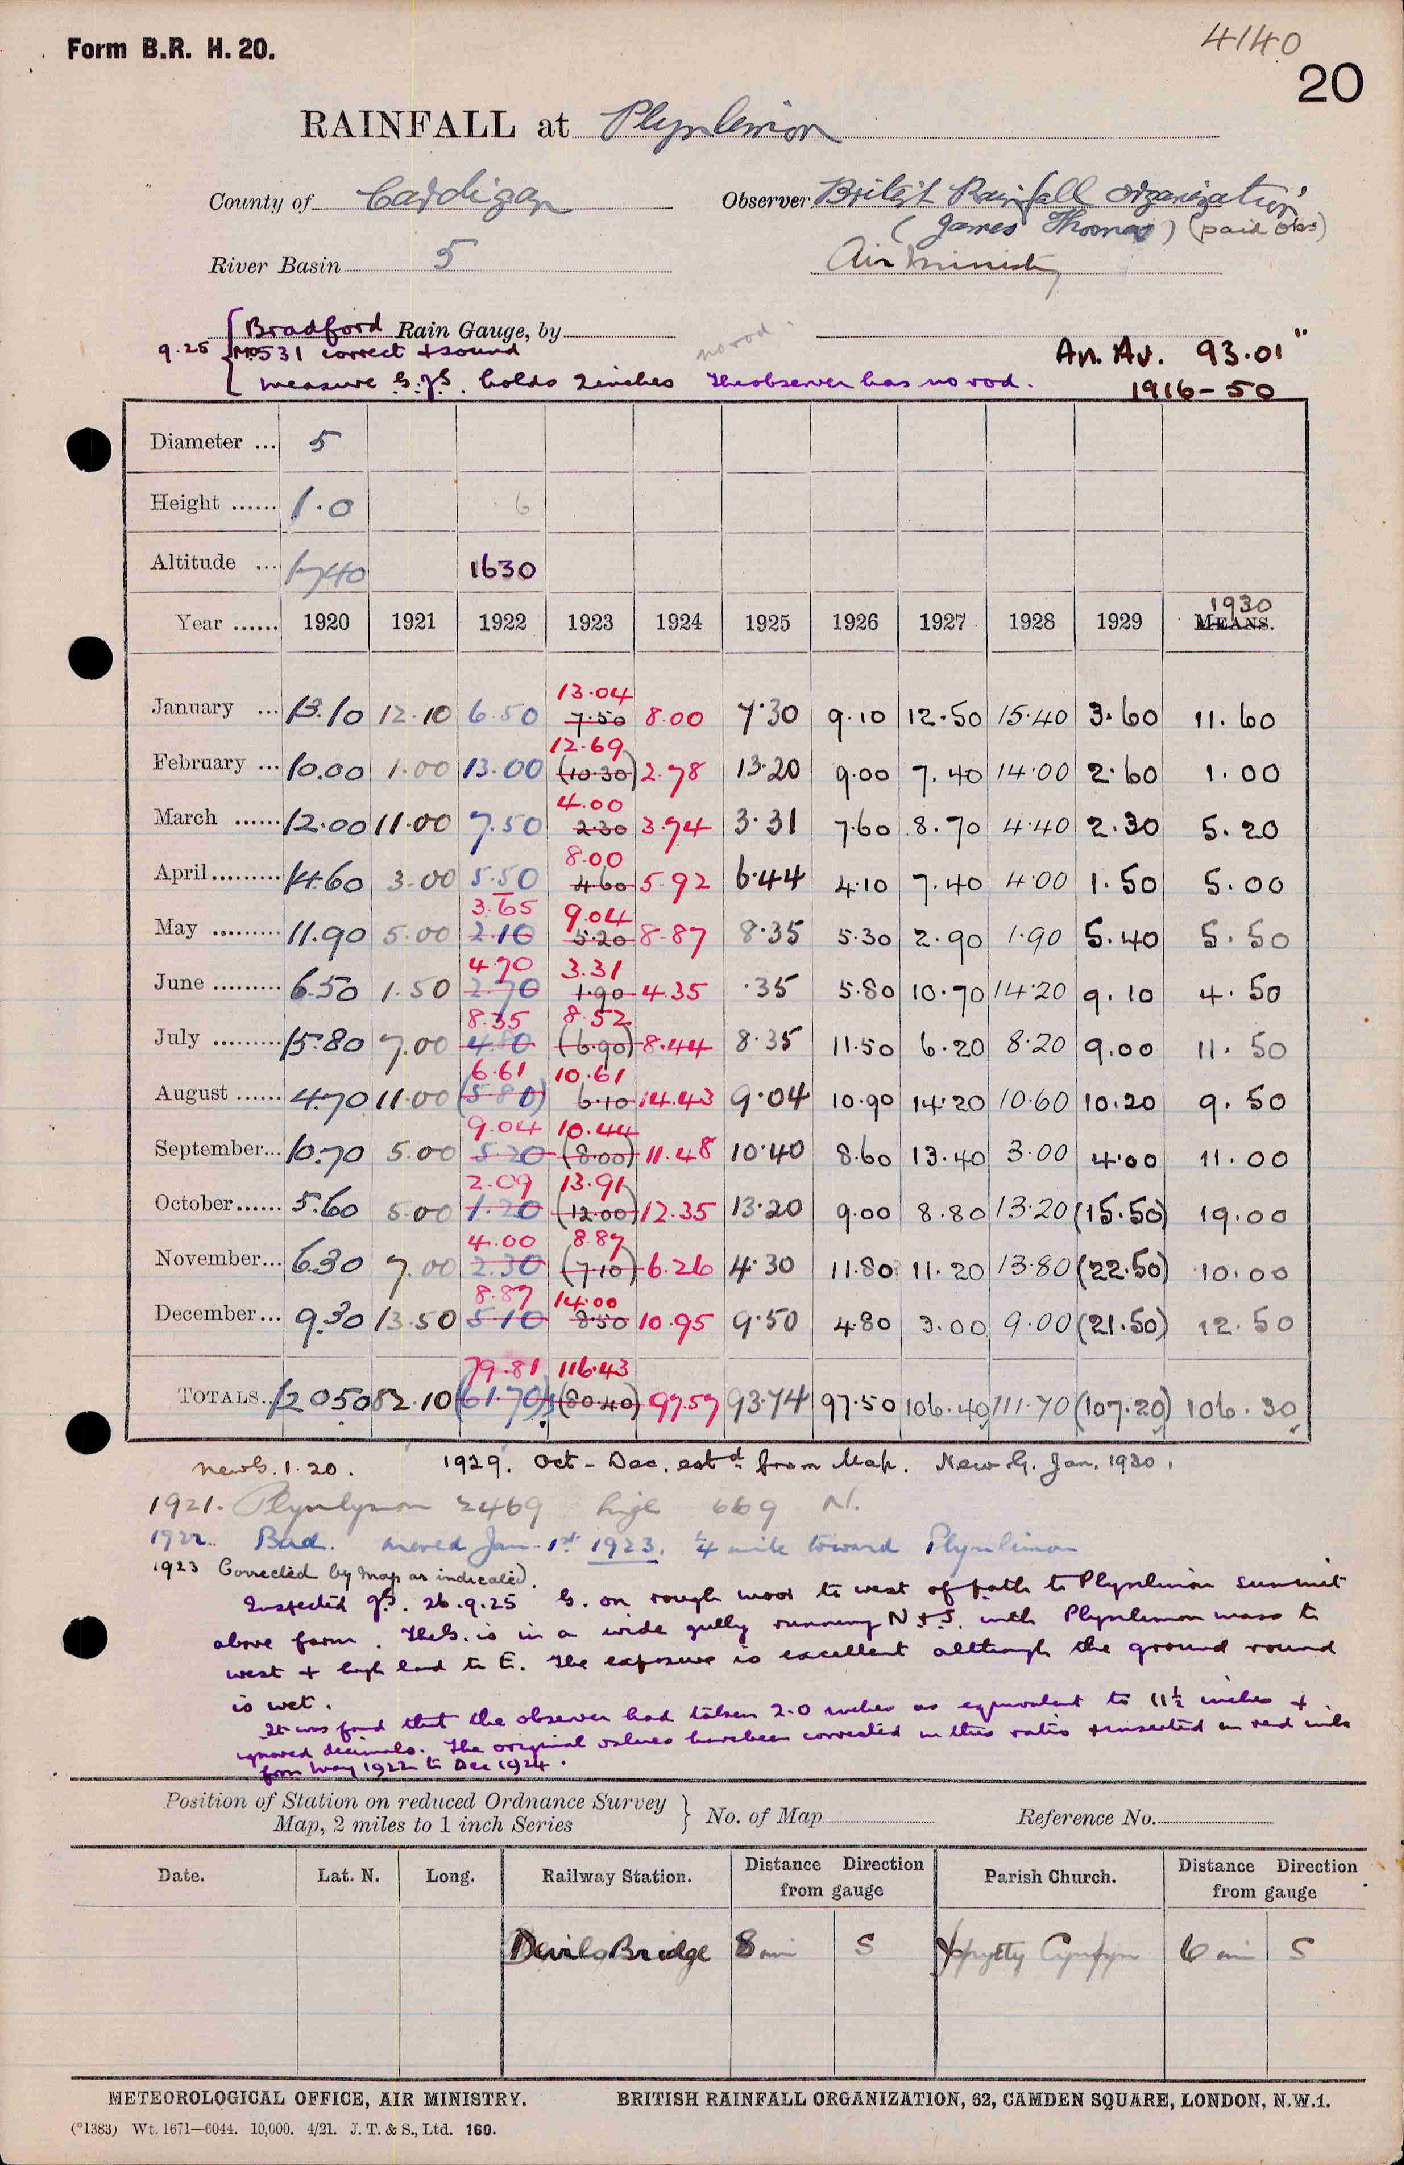 4140
Form B.R. H. 20.
20
RAINFALL at Plynlimon
County of Cardigan Observer British Rainfall Organization
(James Thomas) (paid obs)
River Basin 5 Air Ministry
Bradford Rain Gauge, by
9.25 No 531 correct & sound no rod.
measure G. gs. holds 2 inches The observer has no rod.
An. Av. 93.01"
1916-50
Diameter ... 5
Height ...... 1.0 6
Altitude ... 1740 1630
Year ...... 1920 1921 1922 1923 1924 1925 1926 1927 1928 1929 1930 MEANS.
13.04
January ... 13.10 12.10 6.50 7.50 8.00 7.30 9.10 12.50 15.40 3.60 11.60
12.69
February ... 10.00 1.00 13.00 (10.30) 2.78 13.20 9.00 7.40 14.00 2.60 1.00
4.00
March ...... 12.00 11.00 7.50 2.30 3.74 3.31 7.60 8.70 4.40 2.30 5.20
8.00
April ......... 14.60 3.00 5.50 4.60 5.92 6.44 4.10 7.40 4.00 1.50 5.00
3.65 9.04
May ......... 11.90 5.00 2.10 5.20 8.87 8.35 5.30 2.90 1.90 5.40 5.50
4.70 3.31
June ......... 6.50 1.50 2.70 1.90 4.35 .35 5.80 10.70 14.20 9.10 4.50
8.35 8.52
July ......... 15.80 7.00 4.80 (6.90) 8.44 8.35 11.50 6.20 8.20 9.00 11.50
6.61 10.61
August ...... 4.70 11.00 (5.80) 6.10 14.43 9.04 10.90 14.20 10.60 10.20 9.50
9.04 10.44
September... 10.70 5.00 5.20 (8.00) 11.48 10.40 8.60 13.40 3.00 4.00 11.00
2.09 13.91
October...... 5.60 5.00 1.20 (12.00) 12.35 13.20 9.00 8.80 13.20 (15.50) 19.00
4.00 8.87
November... 6.30 7.00 2.30 (7.10) 6.26 4.30 11.80 11.20 13.80 (22.50) 10.00
8.87 14.00
December... 9.30 13.50 5.10 8.50 10.95 9.50 4.80 3.00 9.00 (21.50) 12.50
79.81 116.43
TOTALS.. 120.50 82.10 (61.70) (80.40) 97.57 93.74 97.50 106.40 111.70 (107.20) 106.30
new G. 1.20. 1929. Oct - Dec. estd. from Map. New G. Jan. 1930.
1921. Plynlymon 2469 high 669 N.
1922. Bad. moved Jan. 1st 1923. ¼ mile toward Plynlimon
1923 Corrected by map as indicated.
Inspected gs. 26.9.25 G. on rough moor to west of path to Plynlimon summit
above farm. The G. is in a wide gully running N & S. with Plynlimon mass to
west & high land to E. The exposure is excellent although the ground round
is wet.
It was found that the observer had taken 2.0 inches as equivalent to 11½ inches &
ignored decimals. The original values have been corrected in this ratio & inserted in red ink
from May 1922 to Dec 1924.
Position of Station on reduced Ordnance Survey
Map, 2 miles to 1 inch Series } No. of Map Reference No.
Date. Lat. N. Long. Railway Station. Distance Direction from gauge Parish Church. Distance Direction from gauge
Devils Bridge 8 mi S Yspytty Cynfyn 6 mi S
METEOROLOGICAL OFFICE, AIR MINISTRY. BRITISH RAINFALL ORGANIZATION, 62, CAMDEN SQUARE, LONDON, N.W.1.
(*1383) Wt. 1671—6044. 10,000. 4/21. J. T. & S., Ltd. 160.